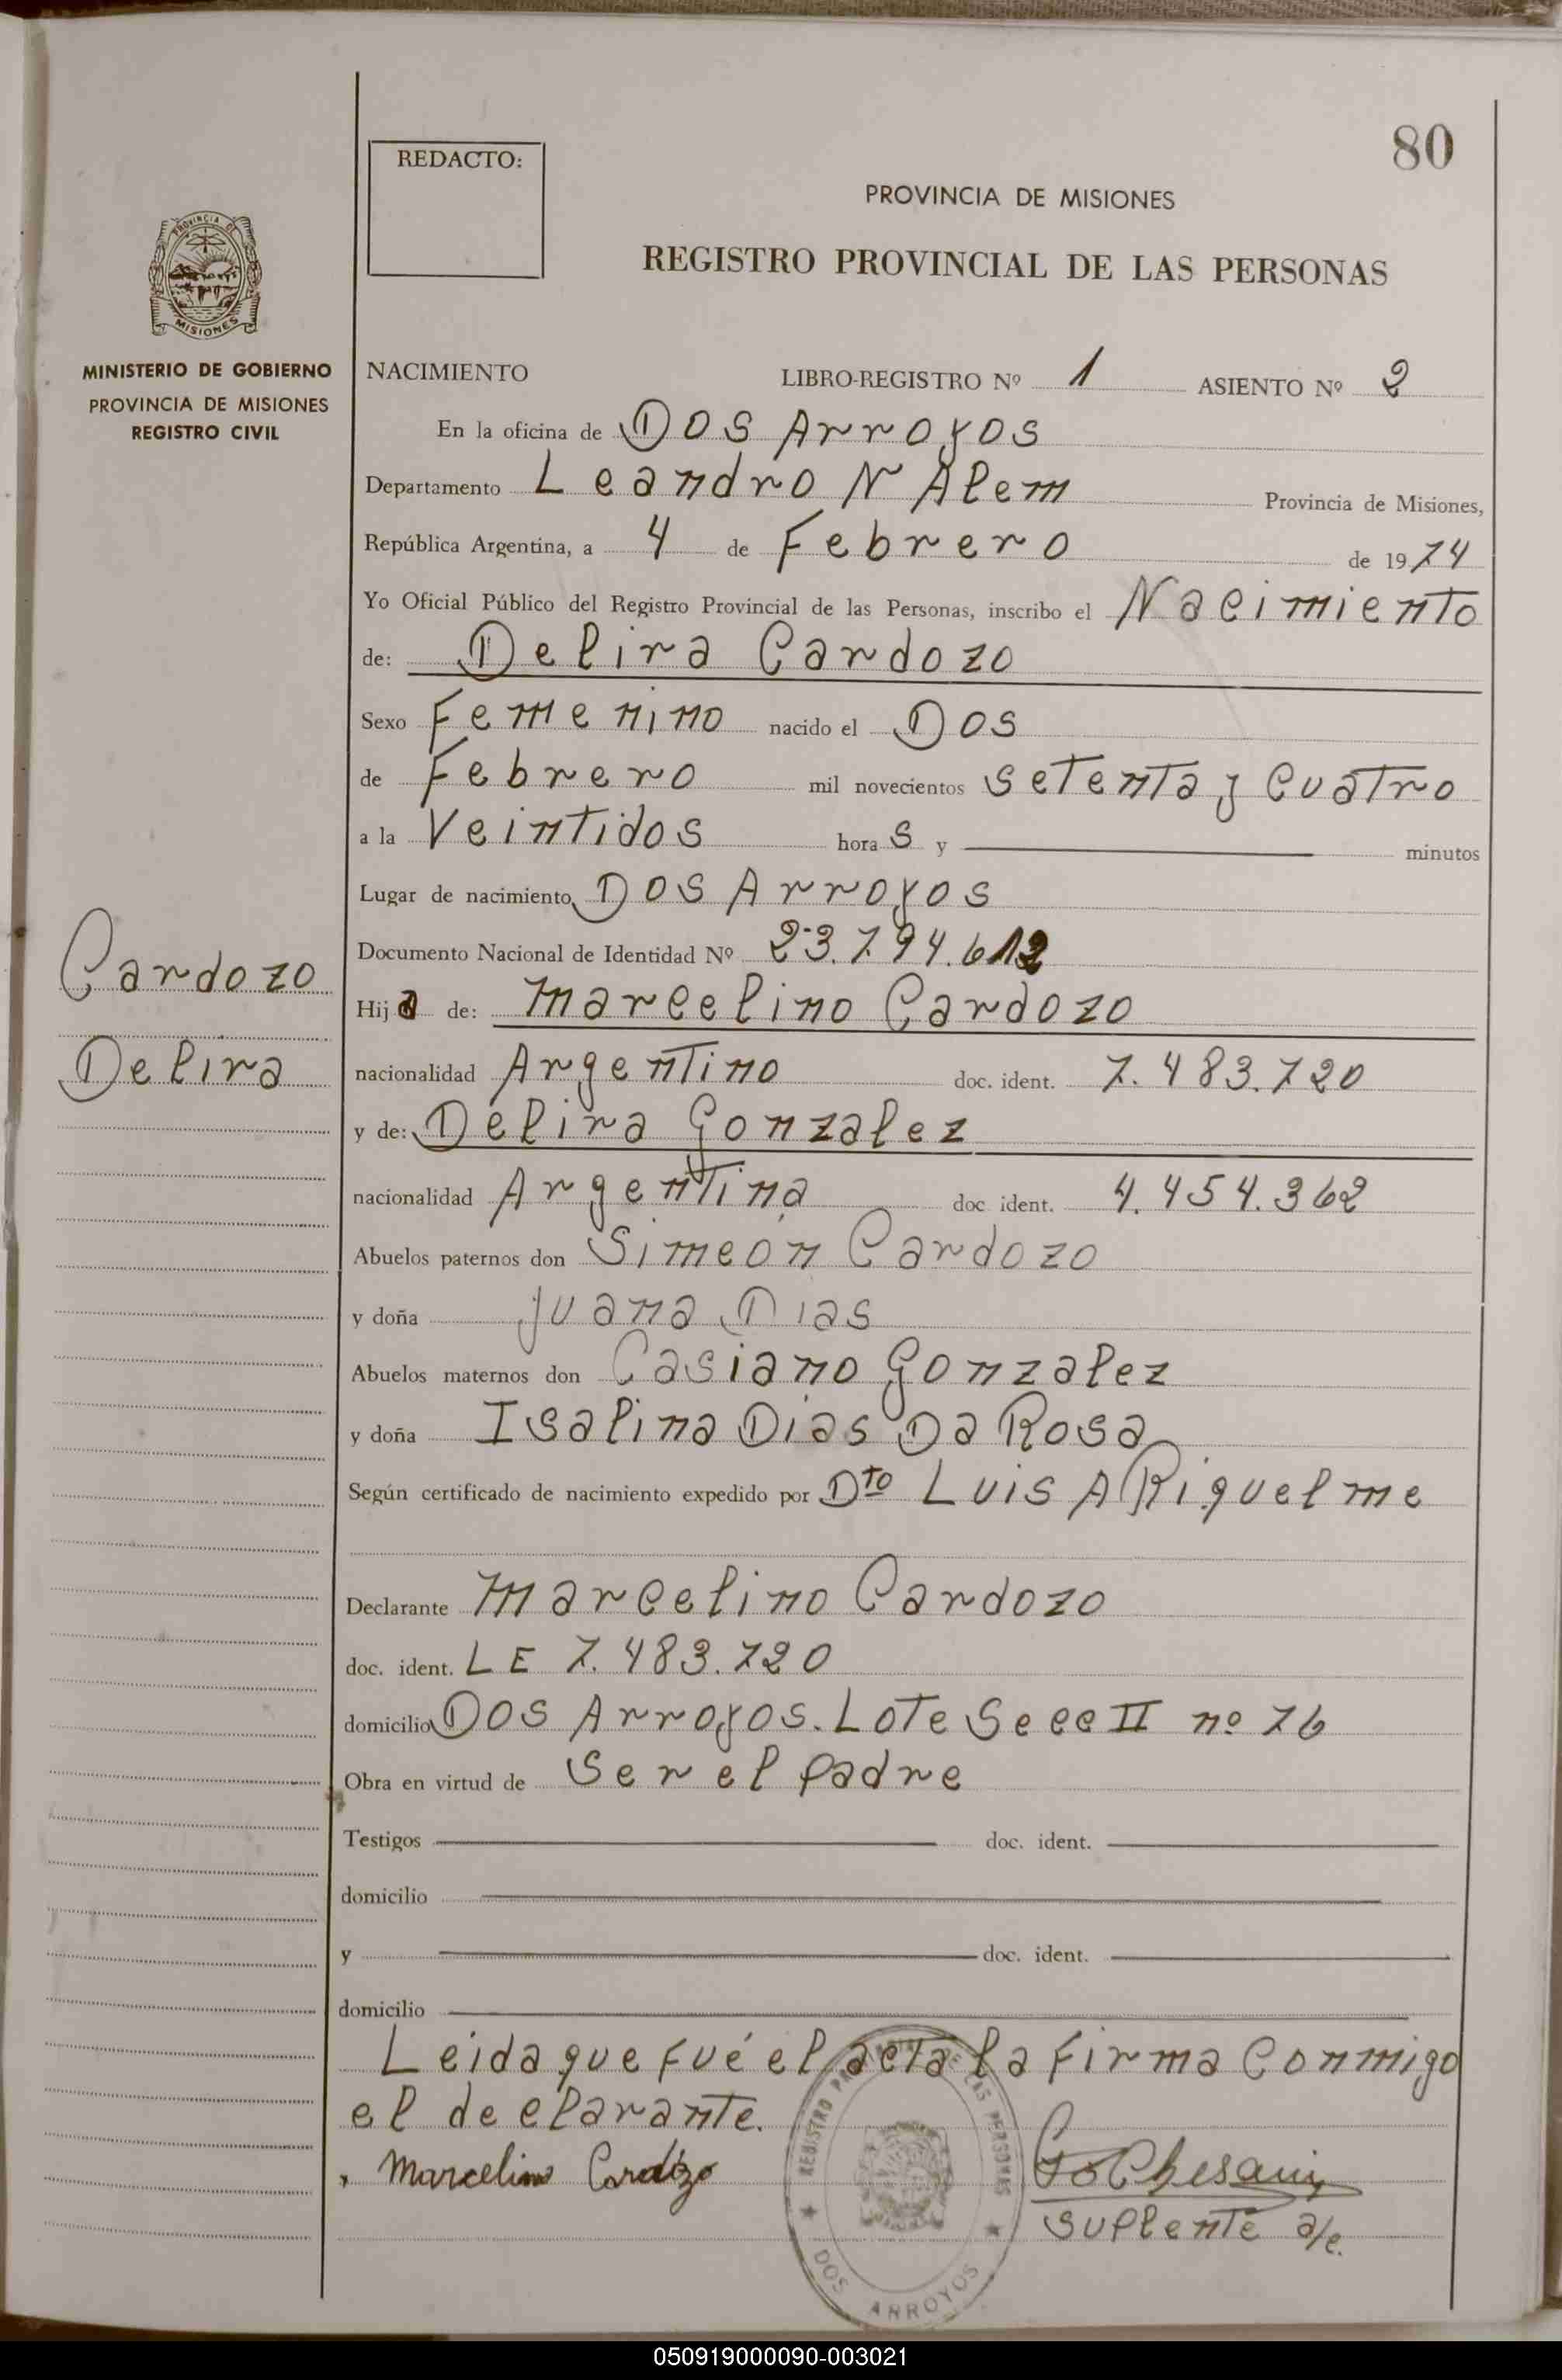 80
REDACTO:
PROVINCIA DE MISIONES
REGISTRO PROVINCIAL DE LAS PERSONAS
PROVINCIA DE
MISIONES
MINISTERIO DE GOBIERNO
PROVINCIA DE MISIONES
REGISTRO CIVIL
NACIMIENTO LIBRO-REGISTRO Nº 1 ASIENTO Nº 2
En la oficina de Dos Arroyos
Departamento Leandro N Alem Provincia de Misiones,
República Argentina, a 4 de Febrero de 1974
Yo Oficial Público del Registro Provincial de las Personas, inscribo el Nacimiento
de: Delira Cardozo
Sexo Femenino nacido el Dos
de Febrero mil novecientos setenta y cuatro
a la Veintidos hora s y minutos
Lugar de nacimiento Dos Arroyos
Documento Nacional de Identidad Nº 23.794.612
Cardozo
Delira
Hij a de: Marcelino Cardozo
nacionalidad Argentino doc. ident. 7.483.720
y de: Delira Gonzalez
nacionalidad Argentina doc ident. 4.454.362
Abuelos paternos don Simeon Cardozo
y doña Juana Dias
Abuelos maternos don Casiano Gonzalez
y doña Isalina Dias Da Rosa
Según certificado de nacimiento expedido por Dto Luis A Riquelme
Declarante Marcelino Cardozo
doc. ident. LE 7.483.720
domicilio Dos Arroyos. Lote Secc II nº 76
Obra en virtud de Ser el padre
Testigos doc. ident.
domicilio
y doc. ident.
domicilio
Leida que fué el acta la firma conmigo
el declarante.
Marcelino Cardozo
suplente a/c.
REGISTRO PROVINCIAL DE LAS PERSONAS
DOS ARROYOS
050919000090-003021